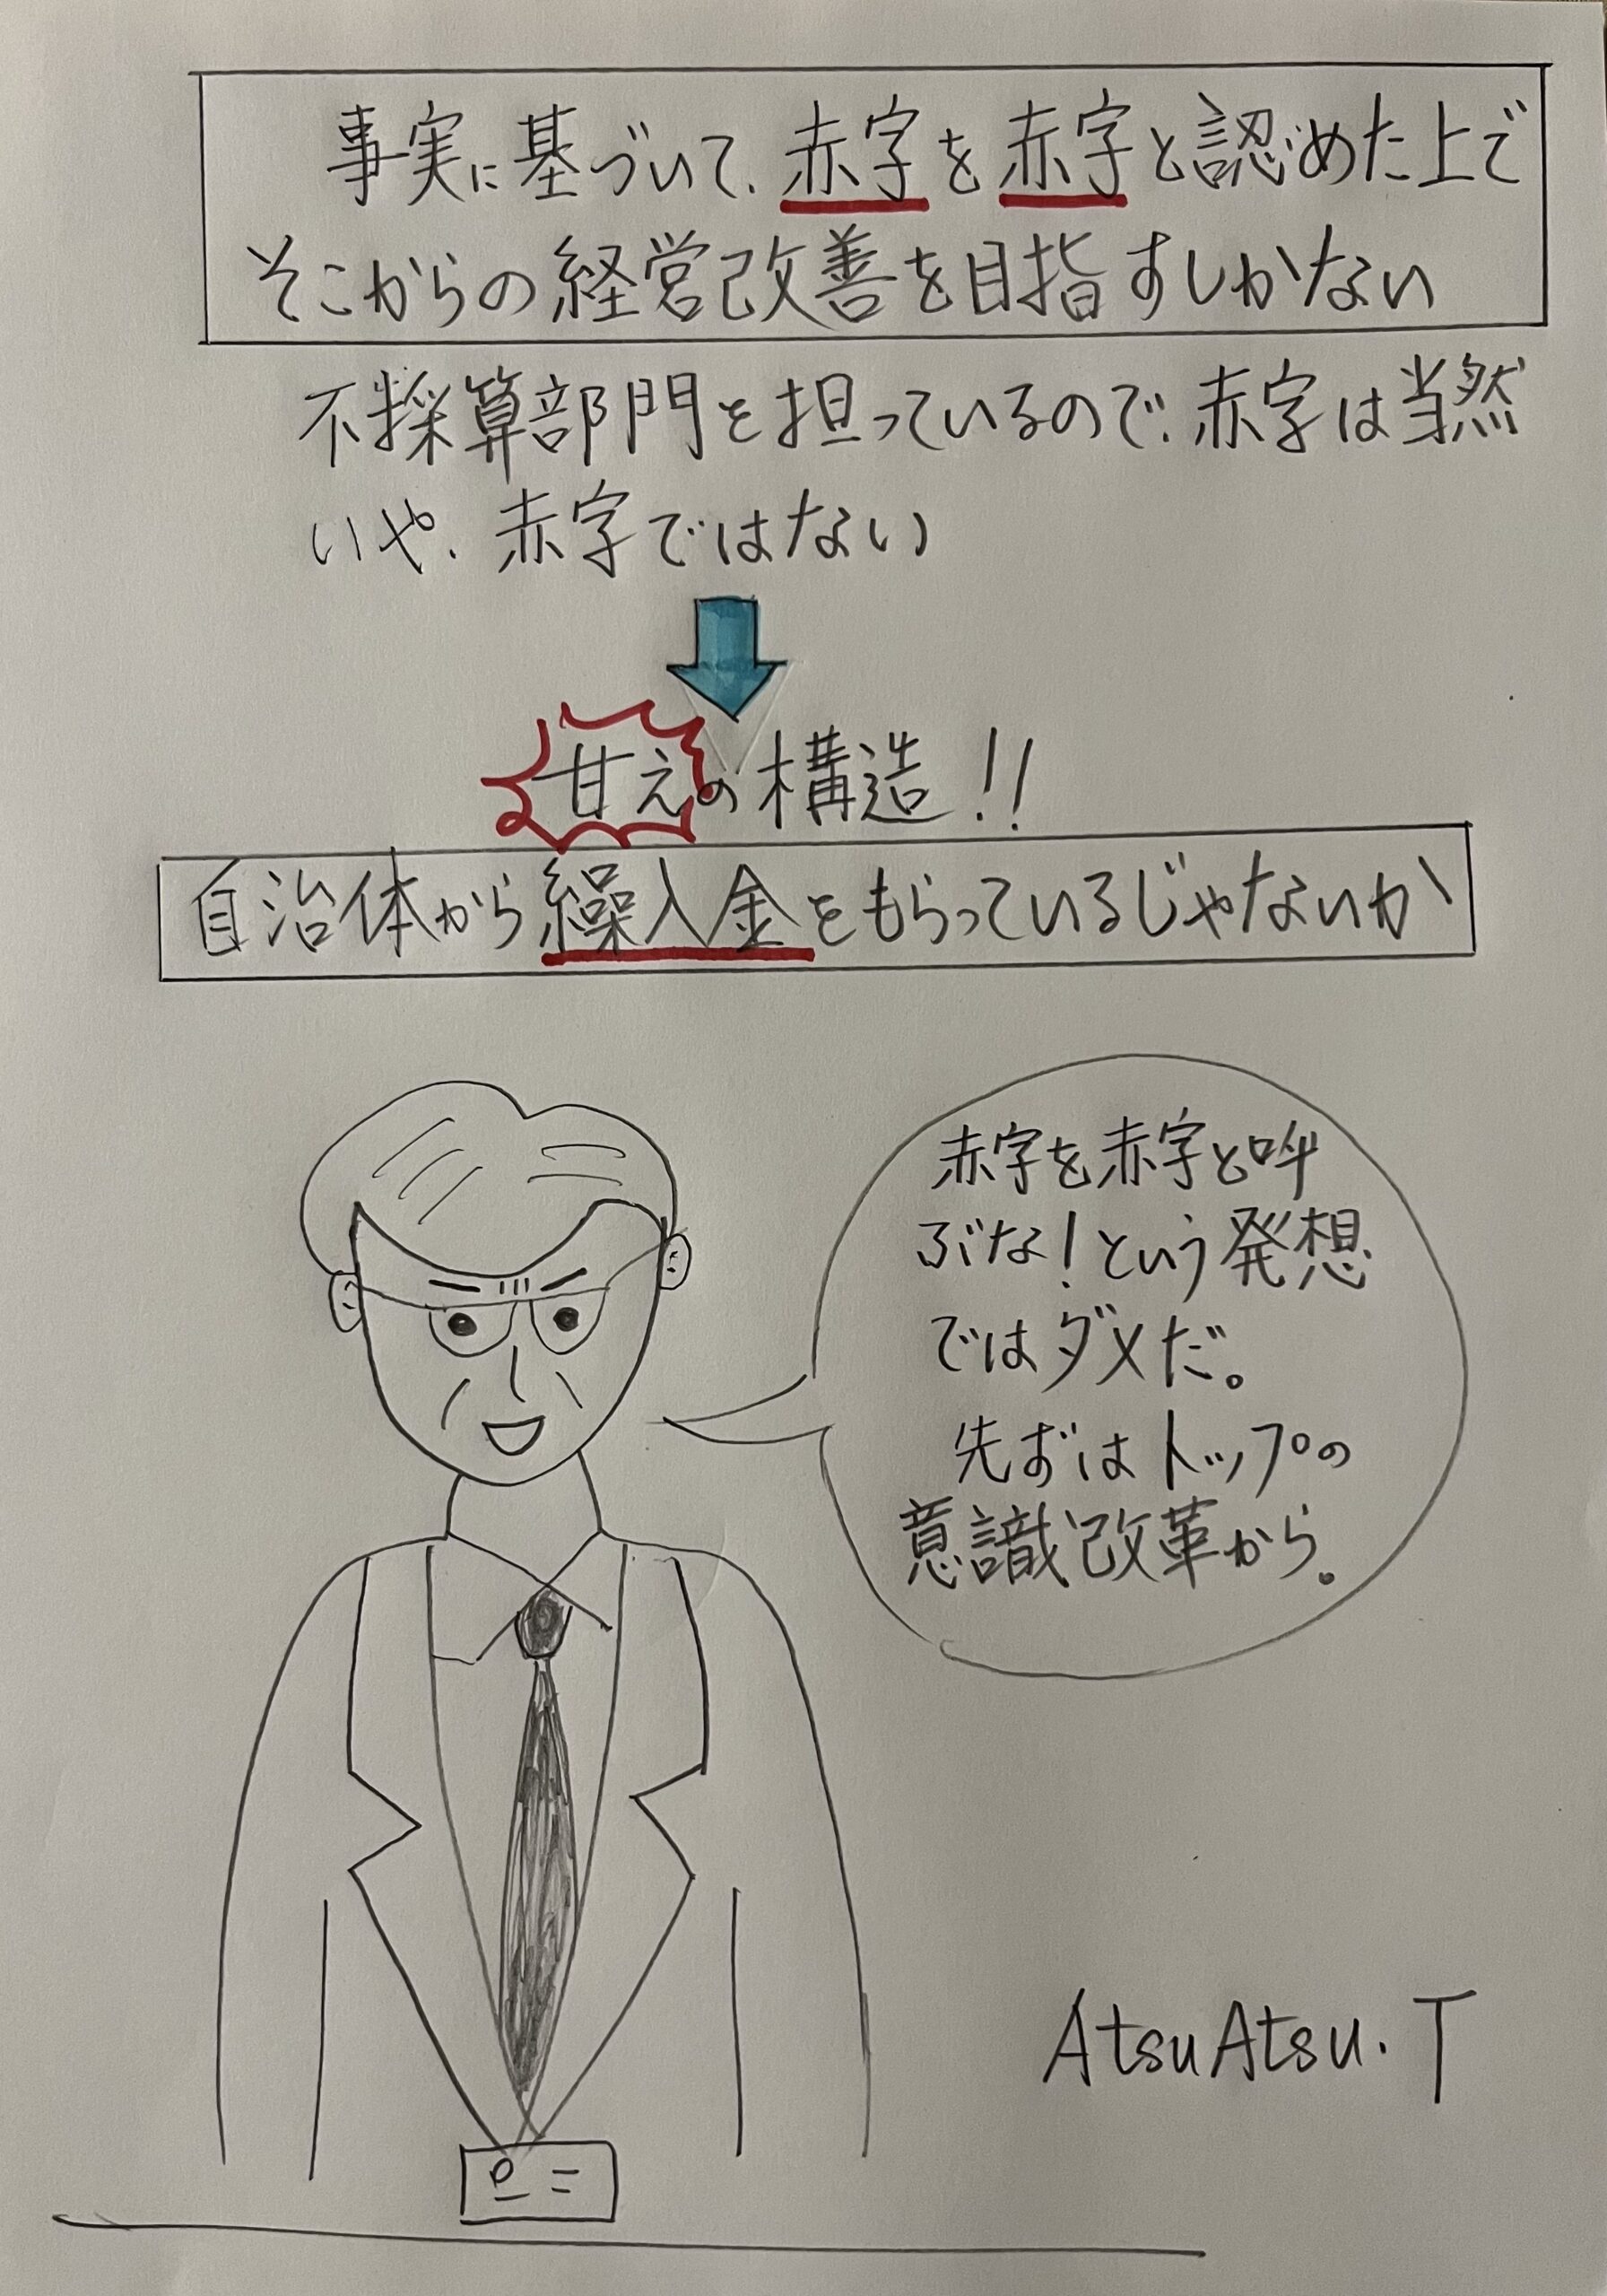 事実に基づいて、赤字を赤字と認めた上で
そこからの経営改善を目指すしかない
不採算部門を担っているので、赤字は当然
いや、赤字ではない
甘えの構造!!
自治体から繰入金をもらっているじゃないか
赤字を赤字と呼
ぶな!という発想
ではダメだ。
先ずはトップの
意識改革から。
AtsuAtsu.T